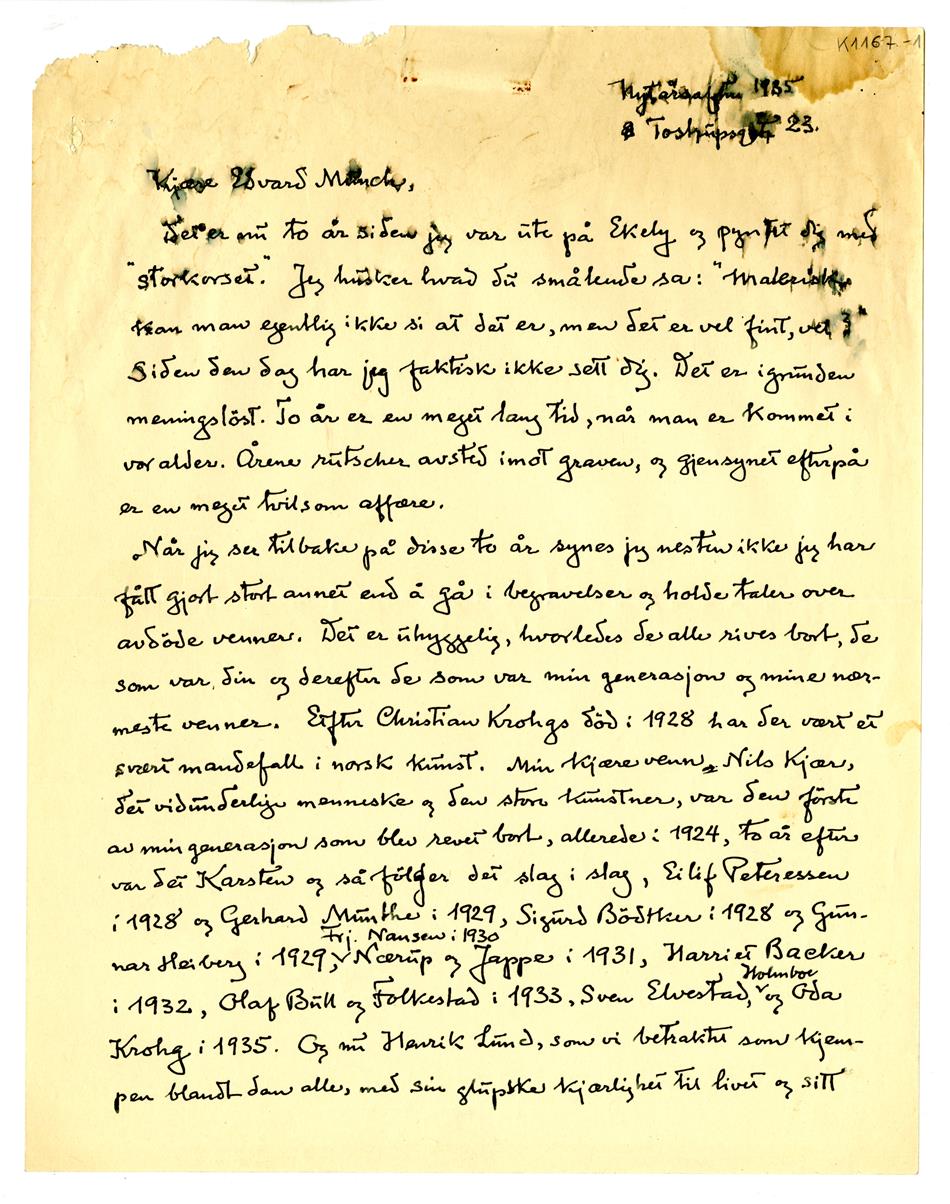 K1167.-1
Nytårsaften 1935
Tostrupsgt 23.
Kjære Edvard Munch,
Det er nu to år siden jeg var ute på Ekely og pyntet dig med
"storkorset." Jeg husker hvad du smålende sa: "Malerisk
kan man egentlig ikke si at det er, men det er vel fint, vel?"
Siden den dag har jeg faktisk ikke sett dig. Det er igrunden
meningslöst. To år er en meget lang tid, når man er kommet i
vor alder. Årene rutscher avsted imot graven, og gjensynet efterpå
er en meget tvilsom affære.
Når jeg ser tilbake på disse to år synes jeg nesten ikke jeg har
fått gjort stort annet end å gå i begravelser og holde taler over
avdöde venner. Det er uhyggelig, hvorledes de alle rives bort, de
som var din og derefter de som var min generasjon og mine nær-
meste venner. Efter Christian Krohgs död i 1928 har der vært et
svært mandefall i norsk kunst. Min kjære venn Nils Kjær,
det vidunderlige menneske og den store kunstner, var den förste
av min generasjon som blev revet bort, allerede i 1924, to år efter
var det Karsten og så fölger det slag i slag, Eilif Peterssen
i 1928 og Gerhard Munthe i 1929, Sigurd Bödtker i 1928 og Gun-
Frj. Nansen i 1930
nar Heiberg i 1929, Nærup og Jappe i 1931, Harriet Backer
Holmboe
i 1932, Olaf Bull og Folkestad i 1933, Sven Elvestad, og Oda
Krohg i 1935. Og nu Henrik Lund, som vi betraktet som kjem-
pen blandt dem alle, med sin glupske kjærlighet til livet og sitt